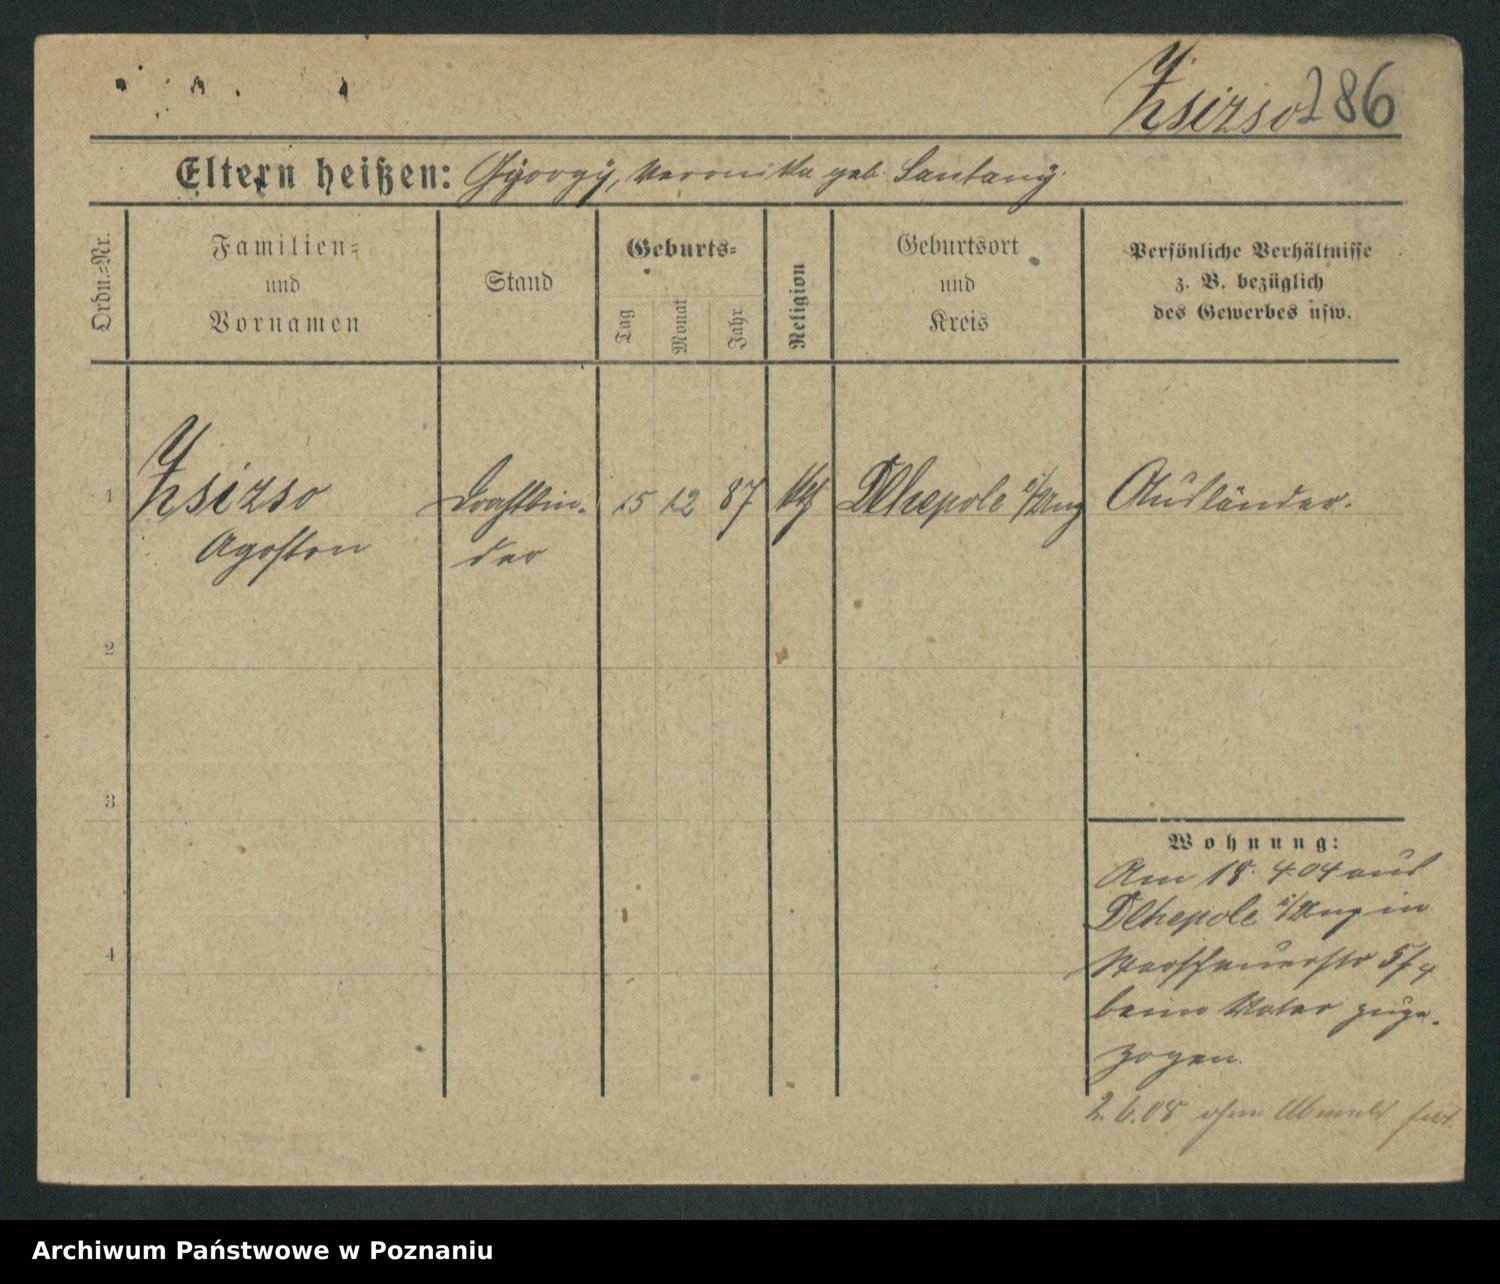 Zsizso 286
Eltern heißen: György, Veronika geb. Santany.
Ordn.=Nr.
Familien=
und
Vornamen
Stand
Geburts=
Tag
Monat
Jahr
Religion
Geburtsort
und
Kreis
Persönliche Verhältnisse
z. B. bezüglich
des Gewerbes usw.
1 Zsizso Drahtbin- 15 12 87 kth Dlhepole i/Ung Ausländer.
Agoston der
2
3
Wohnung:
Am 18. 4 04 aus
Dlhepole i/Ung in
4
Warschauerstr 5/4
beim Vater zuge-
zogen.
2.6.08 ohne Abmeld fort.